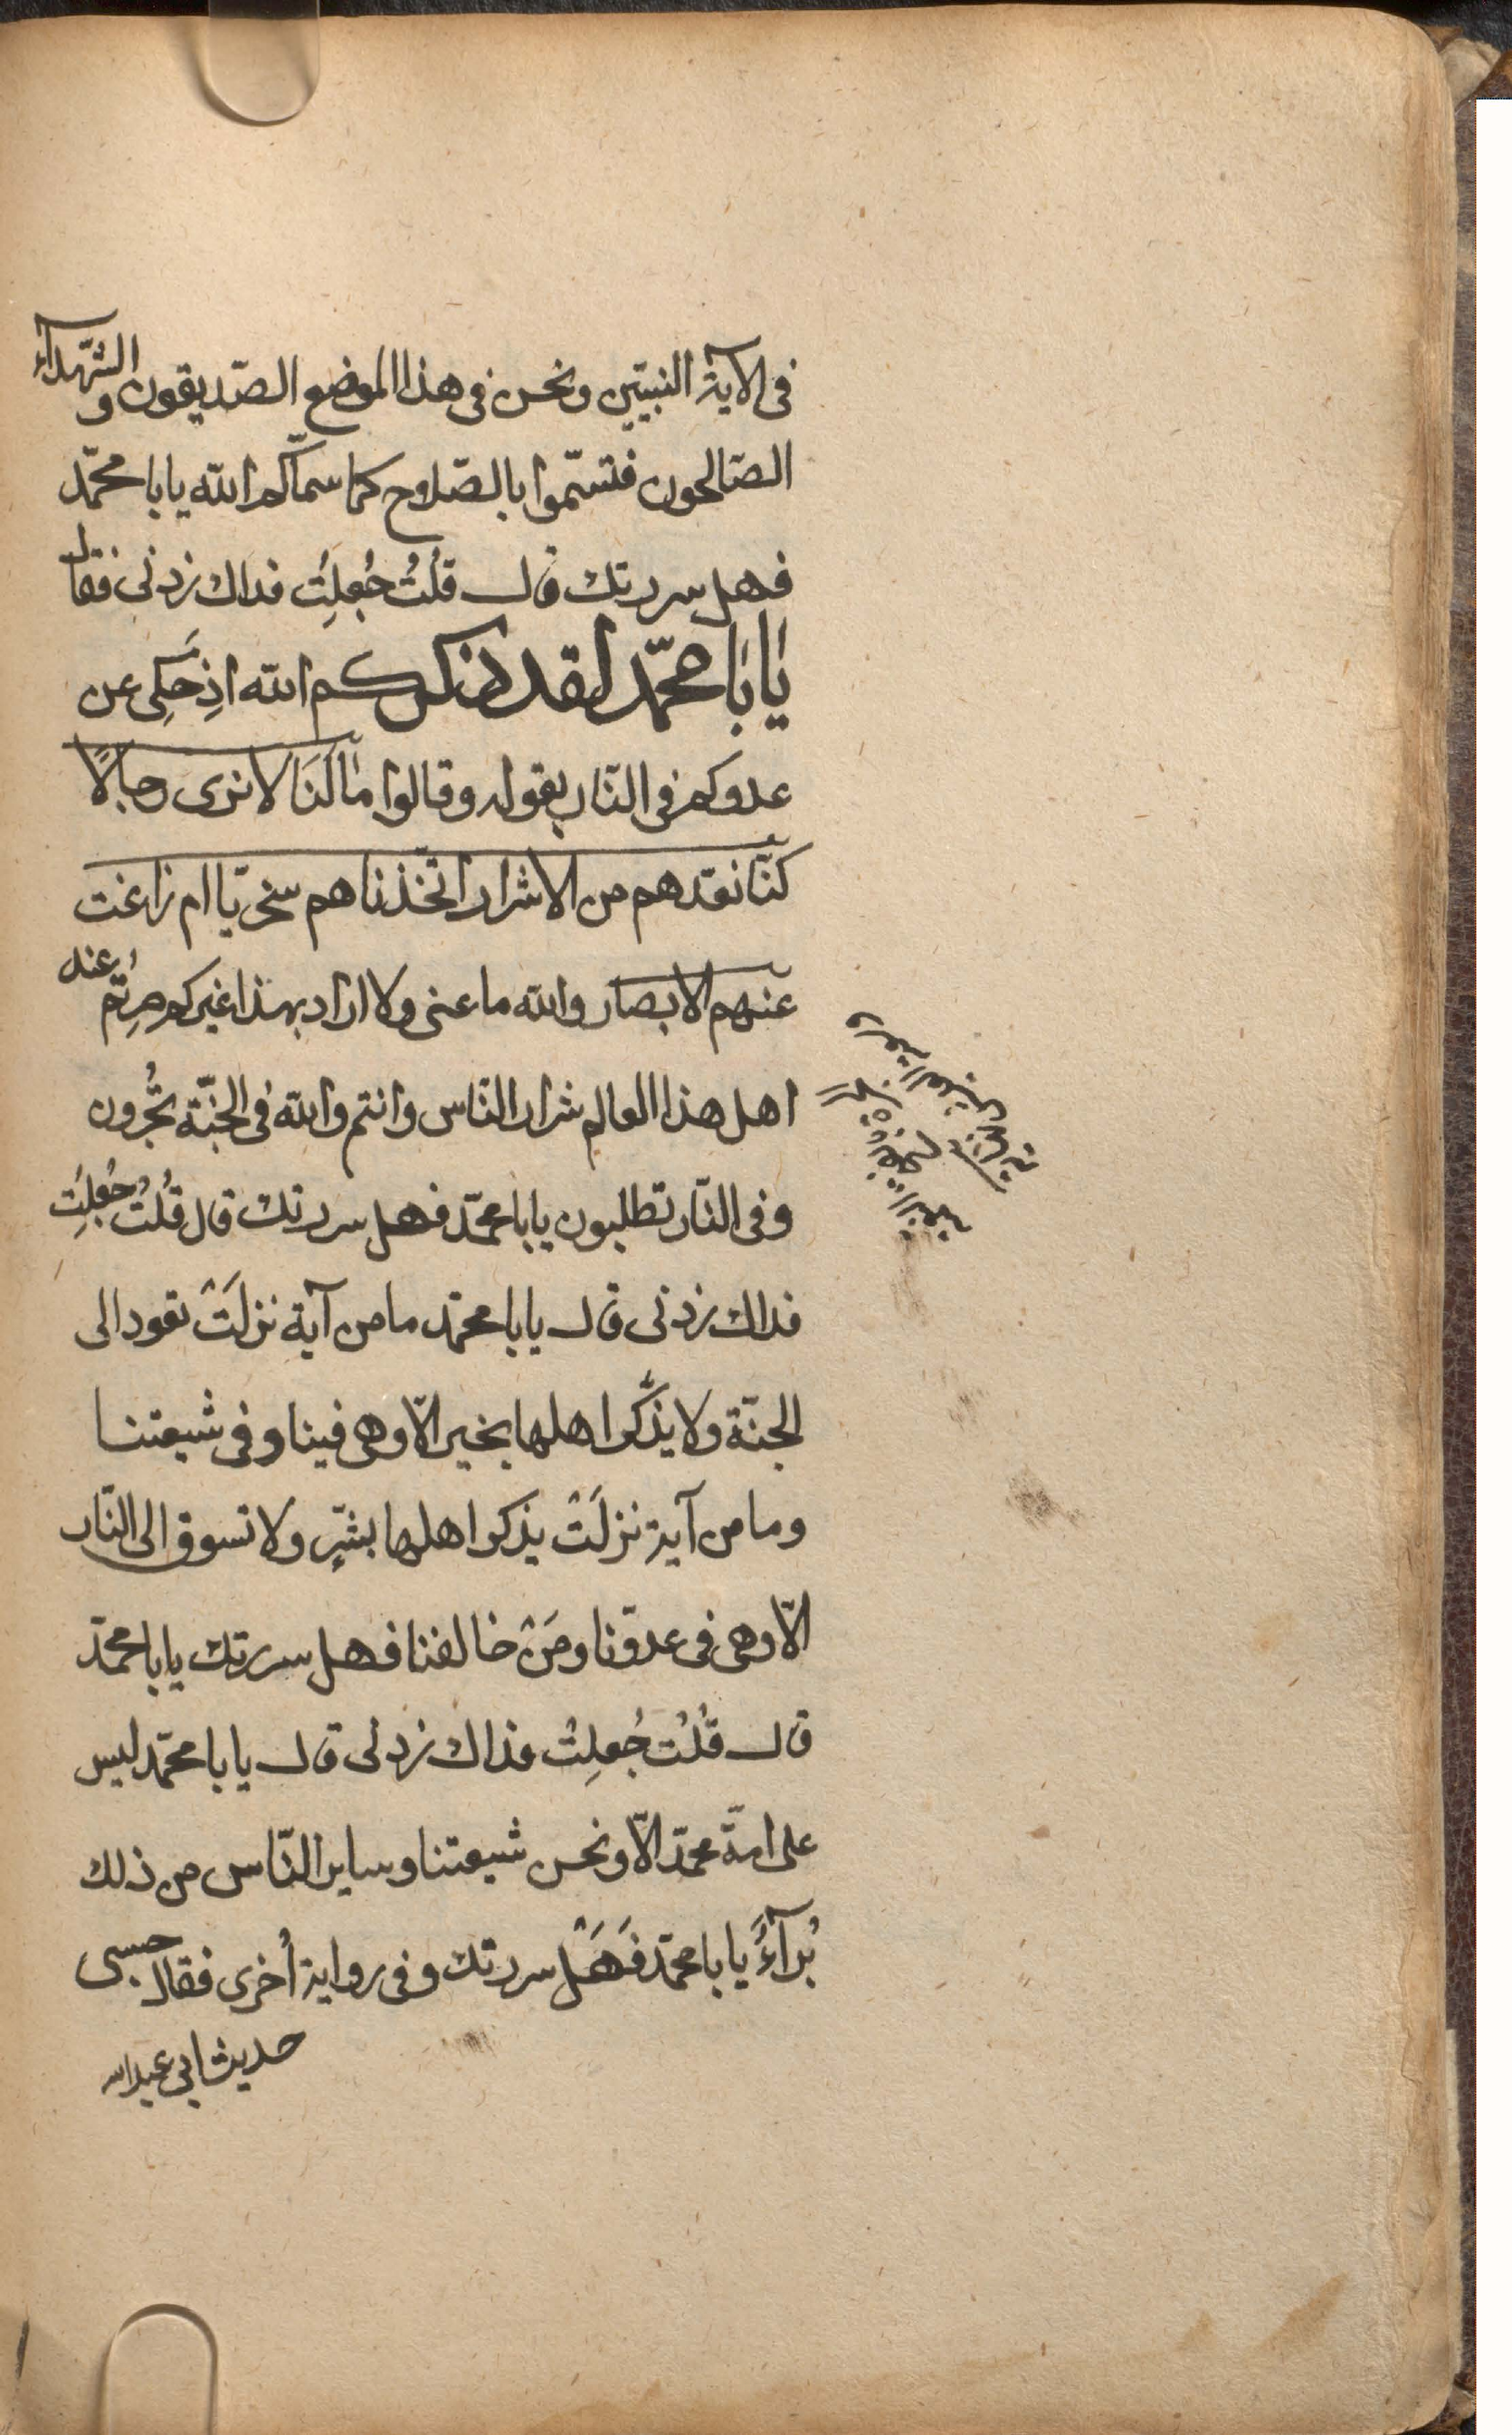 فى الآية النبيّين ونحن فى هذا الموضع الصّديقون و الشّهدآء
الصّالحون فتسمّوا بالصّلاح كما سمّاكم الله يا با محمّد
فهل سررتك قال قلتُ جُعِلتُ فداك زدنى فقال
يا با محمّد لقد ذكركم الله اذ حكى عن
عدوكم فى النّار بقوله وقالوا ما لنا لا نرى رجالًا
كنّا نعدّهم من الاشرار اتّخذناهم سخريّا ام زاغت
عنهم الابصار والله ما عنى ولا اراد بهذا غيركم صِرتم عند
اهل هذا العالم شرار النّاس وانتم والله فى الجنّة تُحبرون
وفى النّار تطلبون يا با محمّد فهل سررتك قال قلتُ جُعِلتُ
فداك زدنى قال يا با محمّد ما من آية نزلَتْ تقود الى
الجنّة ولا يذكر اهلها بخير الّا وهى فينا وفى شيعتنا
وما من آية نزلَتْ يذكر اهلها بشرٍّ ولا تسوق الى النّار
الّا وهى فى عدوّنا ومَنْ خالفنا فهل سررتك يا با محمّد
قال قُلتُ جُعِلتُ فداك زدنى قال يا با محمّد ليس
على امّة محمّد الّا ونحن شيعتنا وساير النّاس من ذلك
بُرآءُ يا با محمّد فَهَلْ سررتك وفى رواية أُخرى فقال حسبى
حديث ابى عبدالله